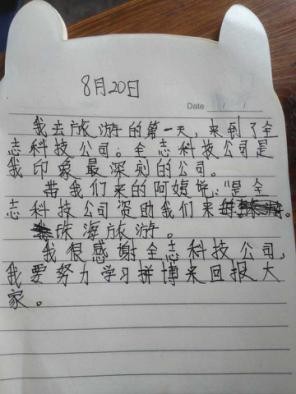 8月20日
Date / /
我去旅游的第一天,来到了全
志科技公司。全志科技公司是
我印象最深刻的公司。
带我们来的阿姨说:"是全
志科技公司资助我们来
珠海旅游。
我很感谢全志科技公司,
我要努力学习拼博来回报大
家。